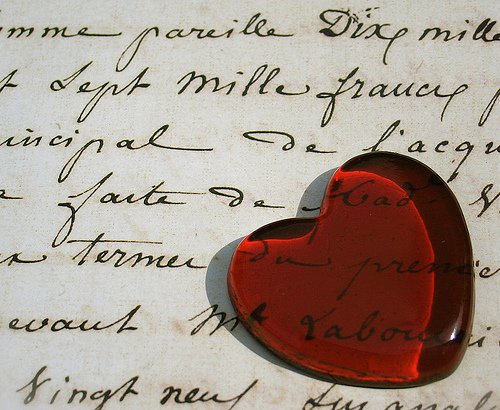 mme pareille Dix mille
t Sept mille francs
incipal de l'acqu
faite de Mad
termes du premie
evant Me Labou
Vingt neuf